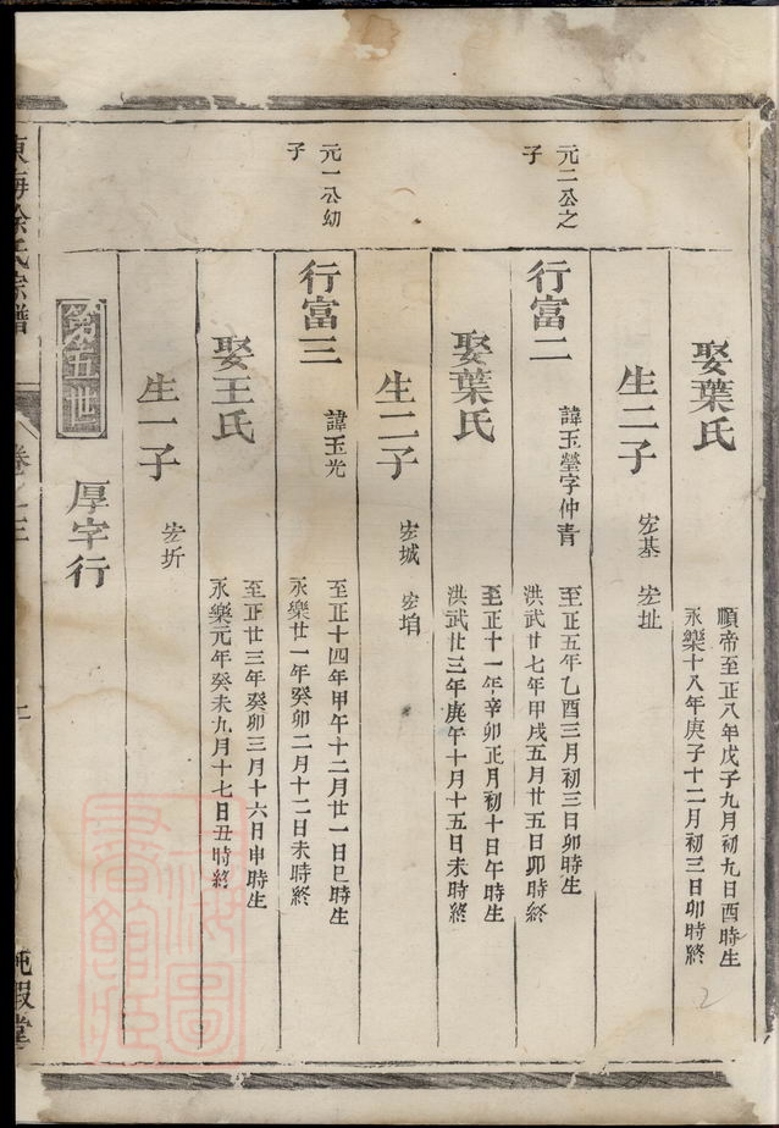 娶葉氏
順帝至正八年戊子九月初九日酉時生
永樂十八年庚子十二月初三日卯時終
生二子
宏基 宏址
元二公之
子
行富二
諱玉瑩字仲青
至正五年乙酉三月初三日卯時生
洪武廿七年甲戌五月廿五日卯時終
娶葉氏
至正十一年辛卯正月初十日午時生
洪武廿三年庚午十月十五日未時終
生二子
宏城 宏垍
元一公幼
子
行富三
諱玉光
至正十四年甲午十二月廿一日巳時生
永樂廿一年癸卯二月十二日未時終
娶王氏
至正廿三年癸卯三月十六日申時生
永樂元年癸未九月十七日丑時終
生一子
宏圻
第五世
厚字行
東海徐氏宗譜
卷之三
純嘏堂
上海圖
書館藏
2